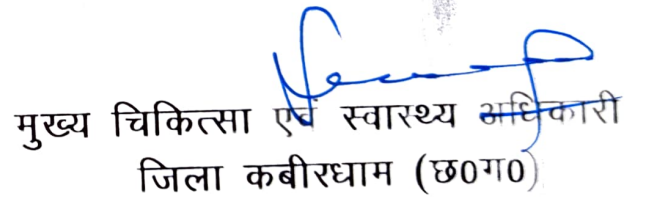 मुख्य चिकित्सा एवं स्वास्थ्य अधिकारी
जिला कबीरधाम (छ0ग0)